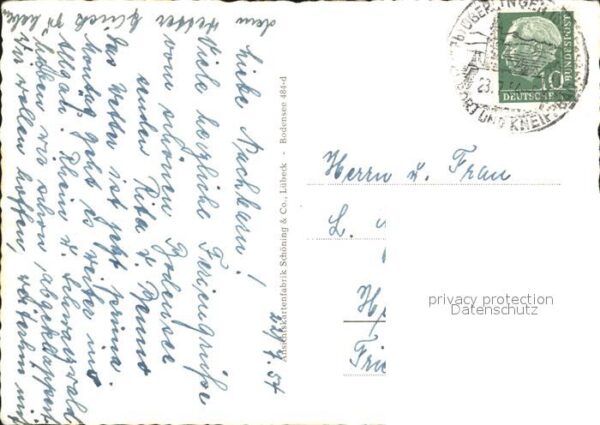 22. 7. 57
Liebe Nachbarn!
Viele herzliche Feriengrüße
vom schönen Bodensee
senden Rita u. Benno
Das Wetter ist jetzt prima
Montag geht es weiter ins
Allgäu. Rhein u. Schwarzwald
haben wir schon abgeklappert
Wir wollen hoffen, weiterhin mit
dem Wetter Glück zu
Ansichtskartenfabrik Schöning & Co., Lübeck - Bodensee 484-d
ÜBERLINGEN
23.
ORT UND KNEIPP
10
DEUTSCHE
BUNDESPOST
Herrn u. Frau
L.
privacy protection
Datenschutz